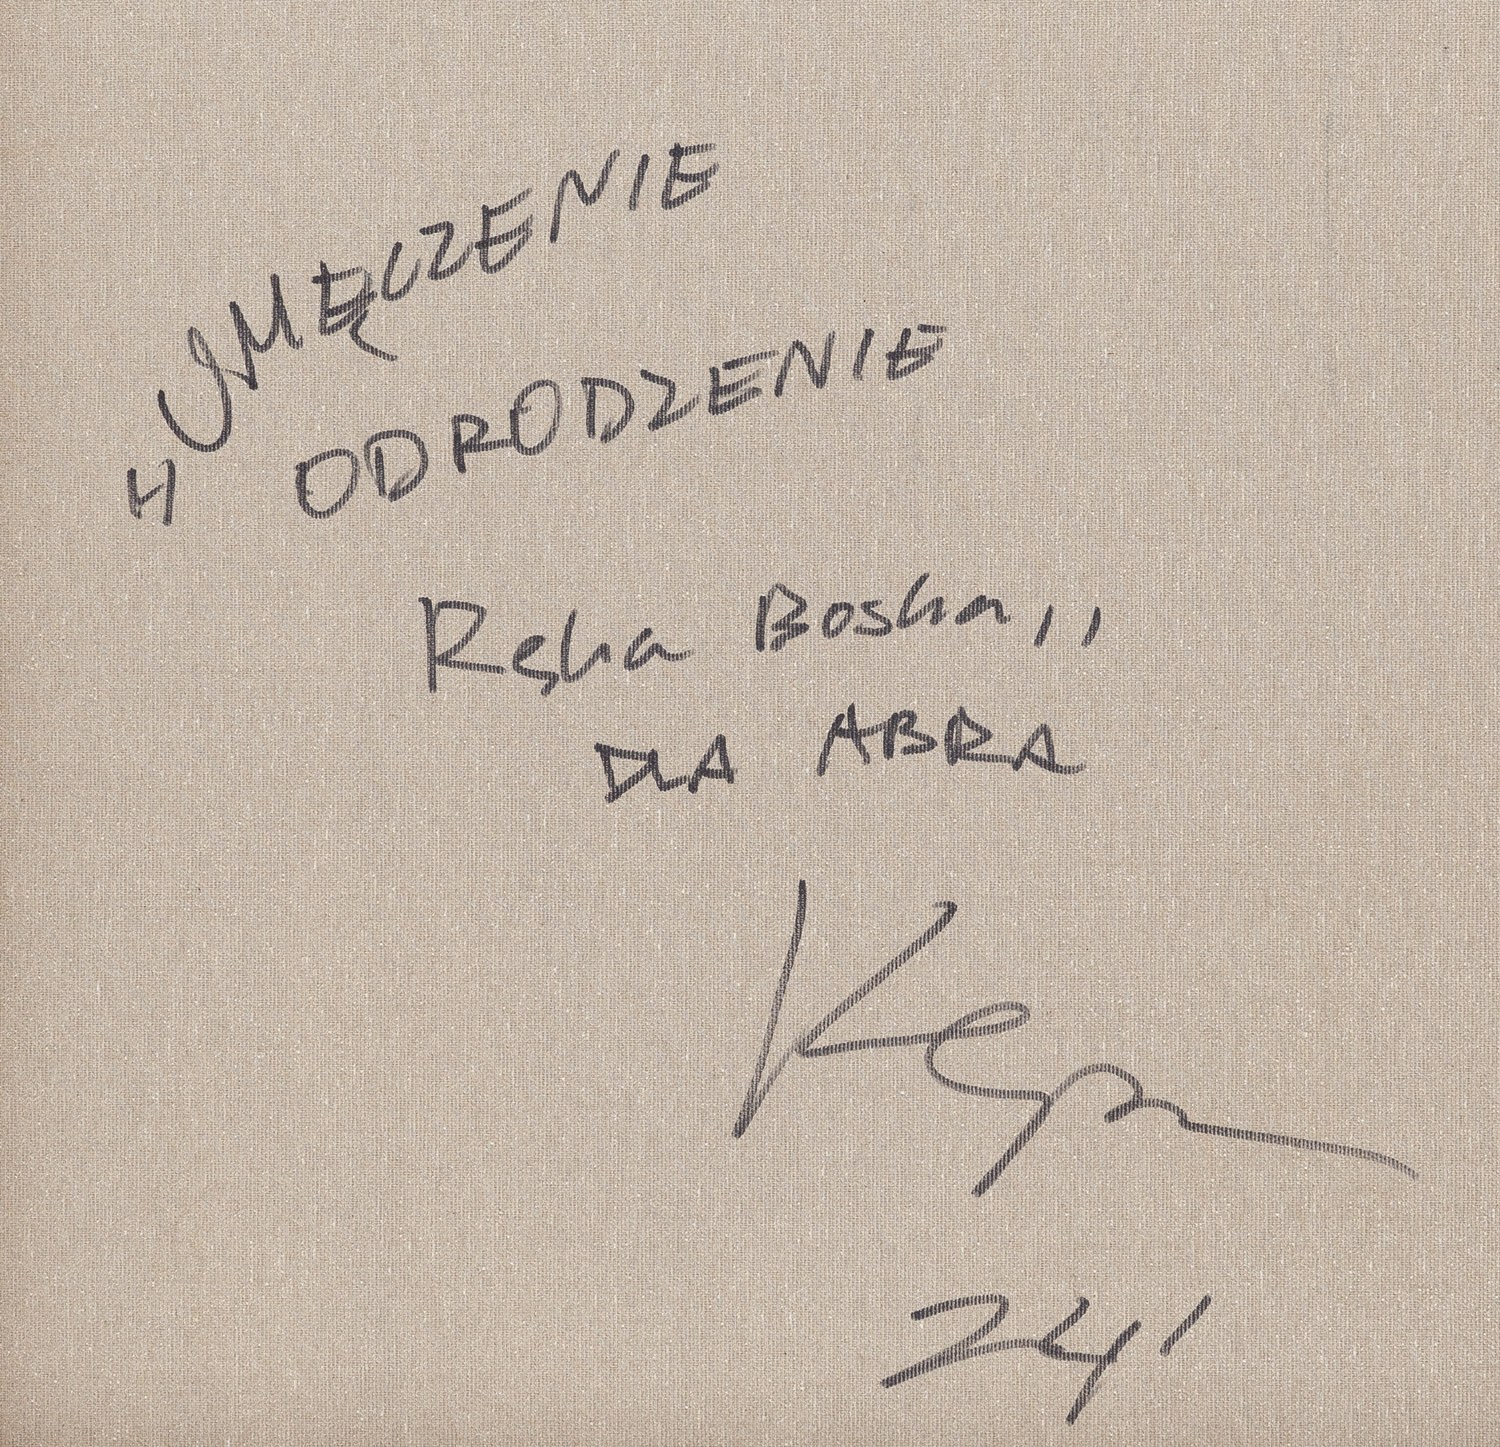 „UMĘCZENIE
ODRODZENIE
Ręka Boska”
DLA ABRA
24'